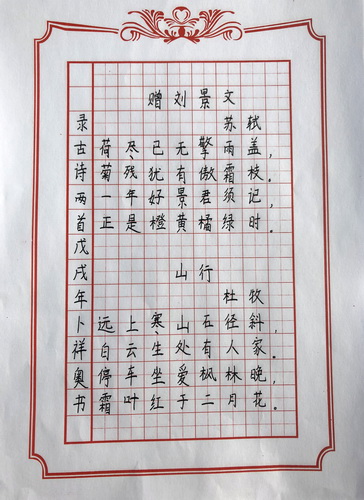 赠刘景文
苏轼
荷尽已无擎雨盖，
菊残犹有傲霜枝。
一年好景君须记，
正是橙黄橘绿时。
山行
杜牧
远上寒山石径斜，
白云生处有人家。
停车坐爱枫林晚，
霜叶红于二月花。
录古诗两首戊戌年卜祥奥书